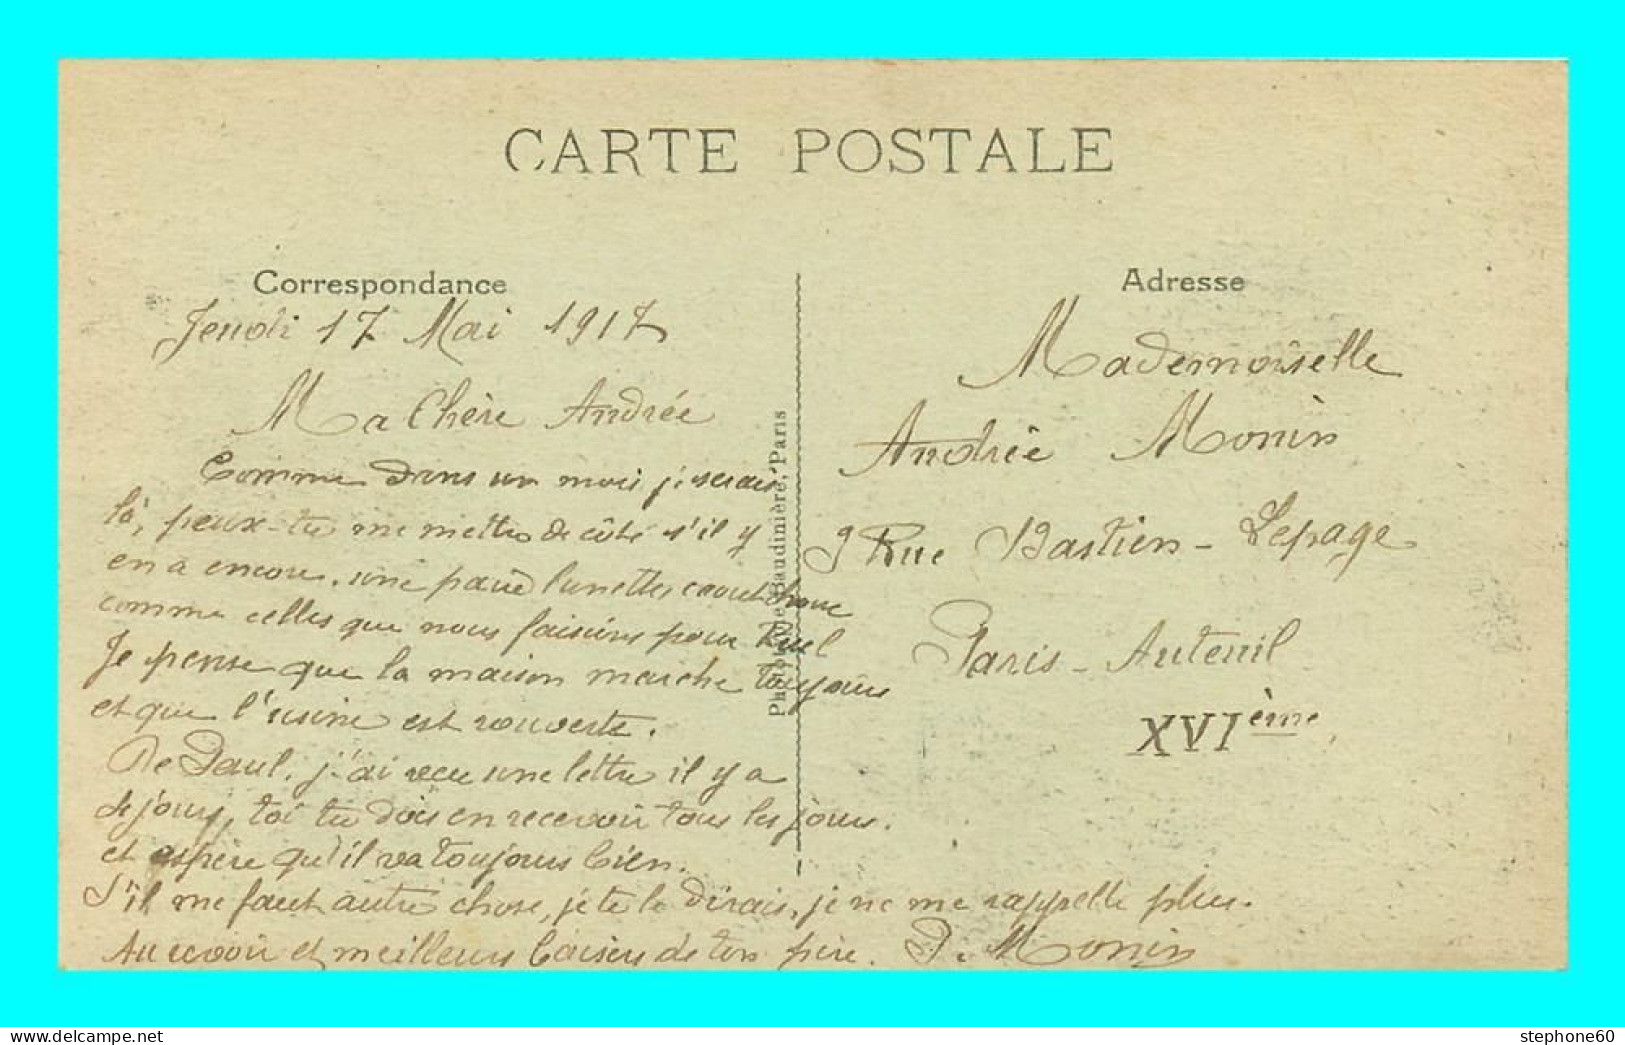 CARTE POSTALE
Correspondance
Adresse
Jeudi 17 Mai 1917
Ma Chère Andrée
Comme dans un mois je serais
là, peux-tu me mettre de côté s'il y
en a encore, une paire lunettes caoutchouc
comme celles que nous faisions pour Ruel
Je pense que la maison marche toujours
et que l'usine est rouverte.
De Paul, j'ai reçu une lettre il y a
jours, toi tu dois en recevoir tous les jours.
et espère qu'il va toujours bien.
S'il me faut autre chose, je te le dirais, je ne me rappelle plus.
Au revoir et meilleurs baisers de ton père. P. Monin
Mademoiselle
Andrée Monin
9 Rue Bastien-Lepage
Paris-Auteuil
XVIème
Phototypie Baudinière, Paris
stephone60